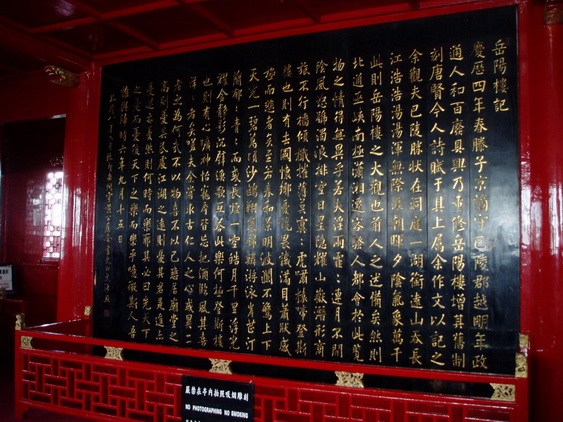 岳陽樓記
慶曆四年春滕子京謫守巴陵郡越明年政
通人和百廢具興乃重修岳陽樓增其舊制
刻唐賢今人詩賦于其上屬余作文以記之
余觀夫巴陵勝狀在洞庭一湖銜遠山吞長
江浩浩湯湯橫無際涯朝暉夕陰氣象萬千
此則岳陽樓之大觀也前人之述備矣然則
北通巫峽南極瀟湘遷客騷人多會於此覽
物之情得無異乎若夫淫雨霏霏連月不開
陰風怒號濁浪排空日星隱耀山嶽潛形商
旅不行檣傾楫摧薄暮冥冥虎嘯猿啼登斯
樓也則有去國懷鄉憂讒畏譏滿目蕭然感
極而悲者矣至若春和景明波瀾不驚上下
天光一碧萬頃沙鷗翔集錦鱗游泳岸芷汀
蘭郁郁青青而或長煙一空皓月千里浮光
耀金靜影沉璧漁歌互答此樂何極登斯樓
也則有心曠神怡寵辱皆忘把酒臨風其喜
洋洋者矣嗟夫予嘗求古仁人之心或異二
者之為何哉不以物喜不以己悲居廟堂之
高則憂其民處江湖之遠則憂其君是進亦憂
退亦憂然則何時而樂耶其必曰先天下
之憂而憂後天下之樂而樂歟噫微斯人吾
誰與歸時六年九月十五日
嚴禁在亭內拍照吸烟雕刻
NO PHOTOGRAPHING NO SMOKING